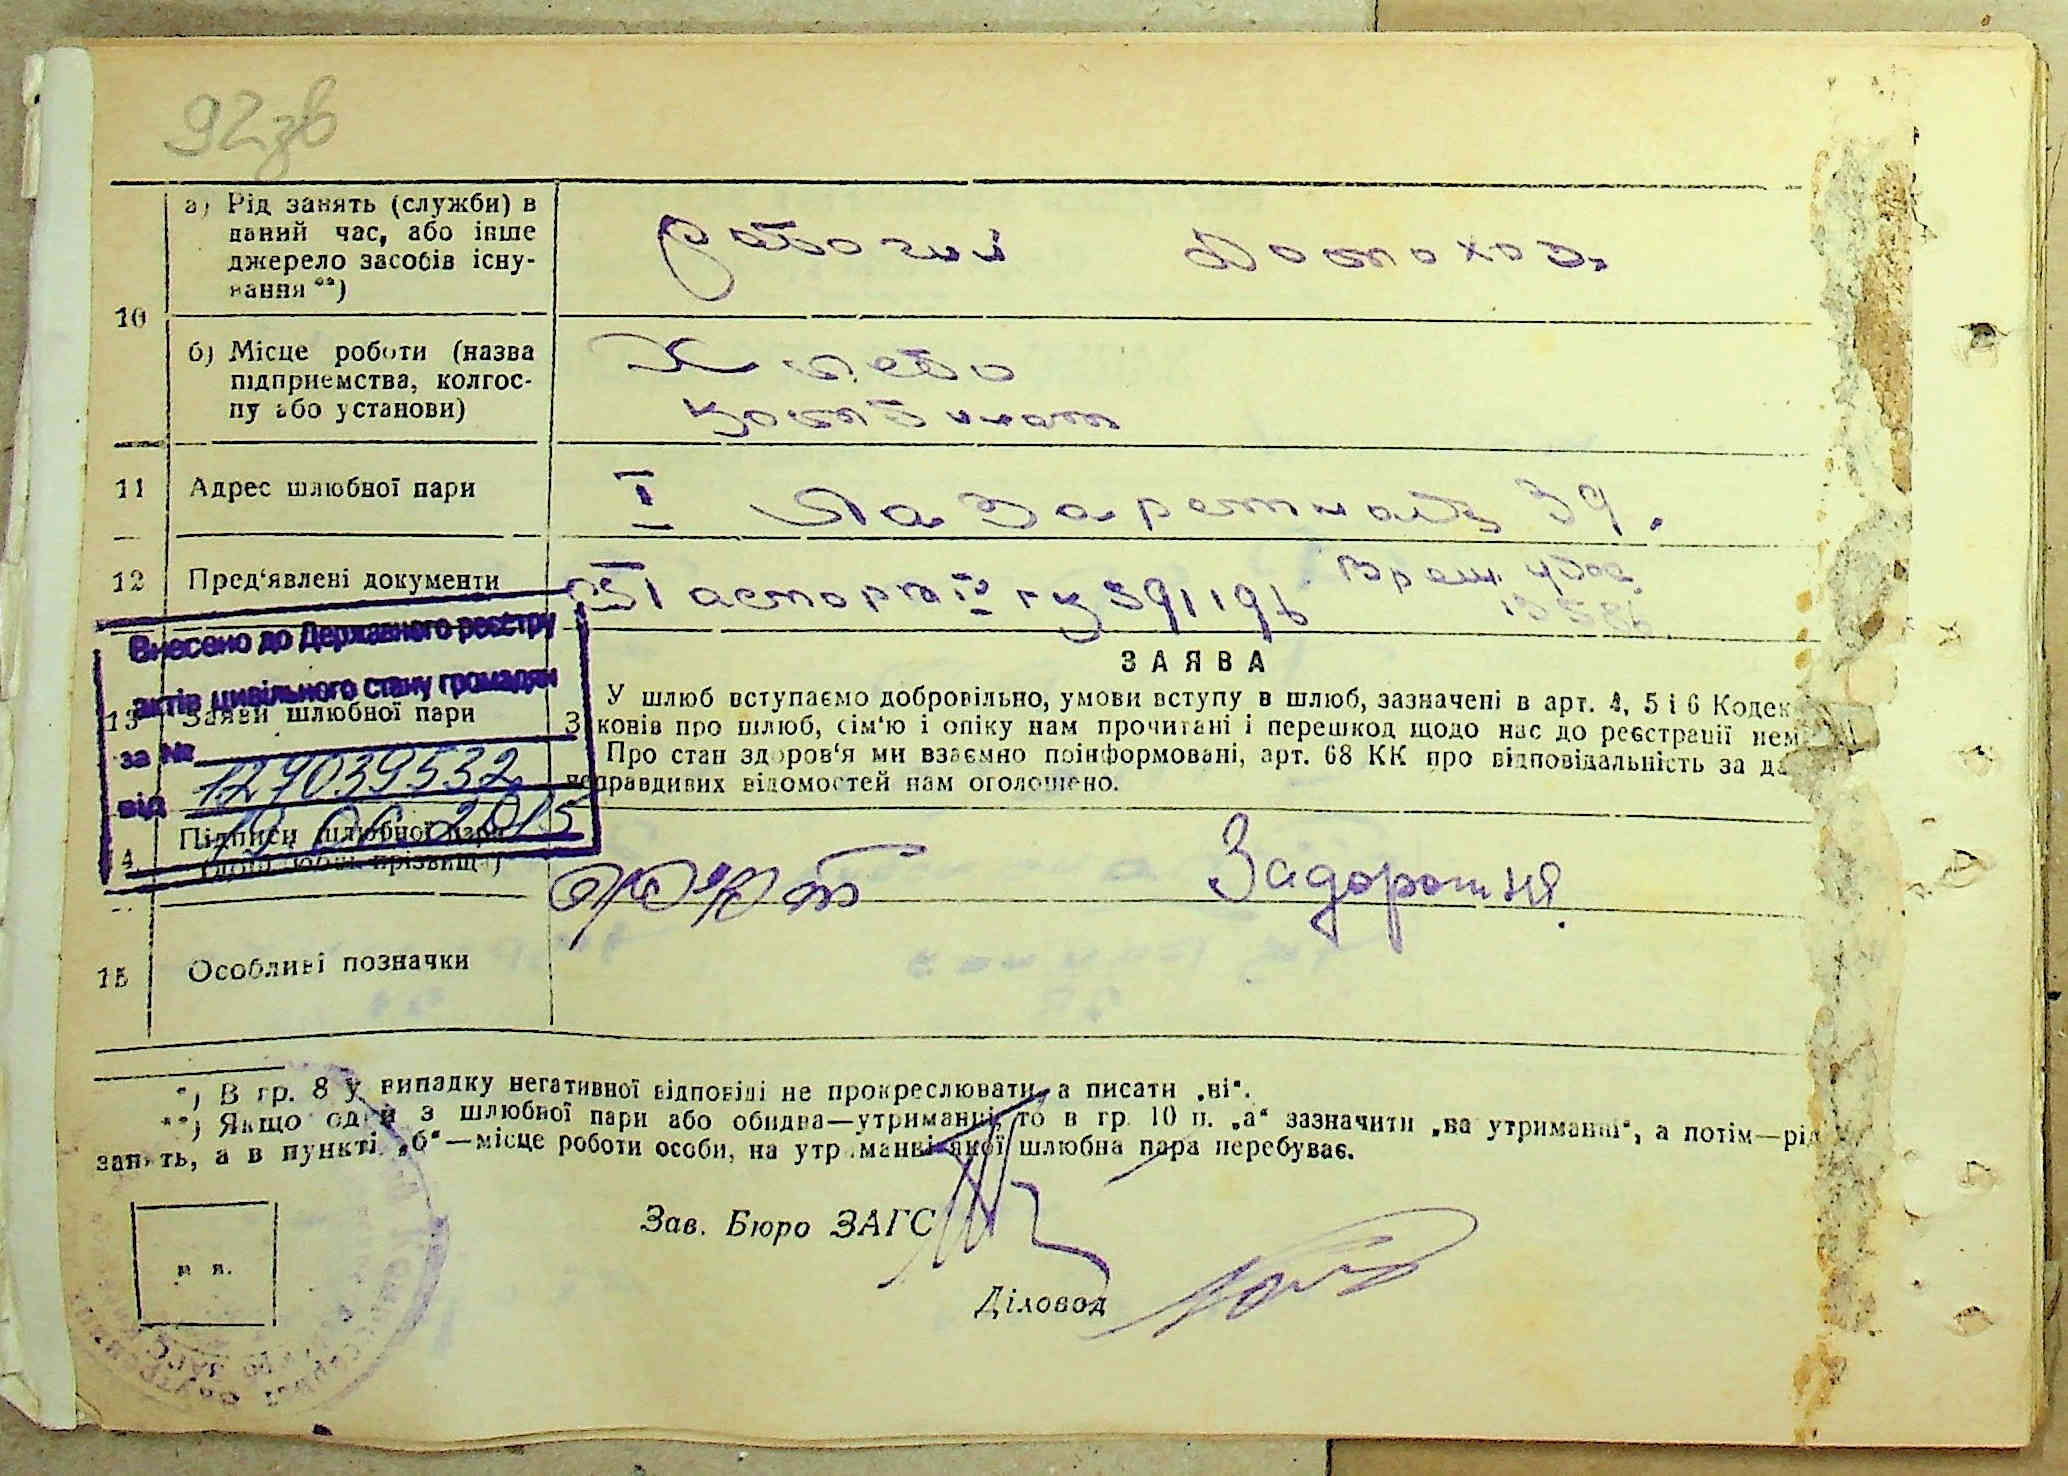 92зв
10
а) Рід занять (служби) в
даний час, або інше
джерело засобів існу-
вання **)
Рабочий Домохоз.
б) Місце роботи (назва
підприємства, колгос-
пу або установи)
Хлебо
комбинат
11 Адрес шлюбної пари
I Лазаретная 39.
12 Пред‘явлені документи
Паспорта IV 591196 Врем. удос.
Внесено до Державного реєстру
актів цивільного стану громадян
за № 129039532
від 2015
13 Заяви шлюбної пари
ЗАЯВА
У шлюб вступаємо добровільно, умови вступу в шлюб, зазначені в арт. 4, 5 і 6 Кодек
конів про шлюб, сім‘ю і опіку нам прочитані і перешкод щодо нас до реєстрації нем
Про стан здоров‘я ми взаємно поінформовані, арт. 68 КК про відповідальність за да
неправдивих відомостей нам оголошено.
Підписи шлюбної пари
Задорожня
15 Особливі позначки
*) В гр. 8 у випадку негативної відповіді не прокреслювати, а писати „ні“.
**) Якщо один з шлюбної пари або обидва—утриманці, то в гр. 10 п. „а“ зазначити „на утриманні“, а потім—рід
занять, а в пункті „б“—місце роботи особи, на утриманні якої шлюбна пара перебуває.
Зав. Бюро ЗАГС
м п.
Діловод